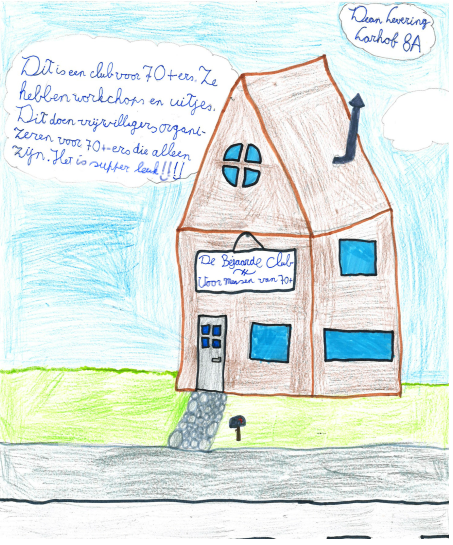 Dean Levering
Larhof 8A
Dit is een club voor 70+ers. Ze
hebben workchops en uitjes.
Dit doen vrijwilligers organi-
zeren voor 70+ers die alleen
zijn. Het is supper leuk!!!!
De Bejaarde Club
Voor mensen van 70+